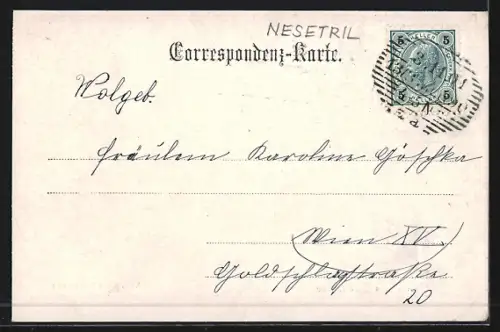 NESETRIL
Correspondenz-Karte.
5 HELLER 5
5 5
Wolgeb.
Fräulein Karoline Göschka
Wien XV.
Goldschlagstraße
20